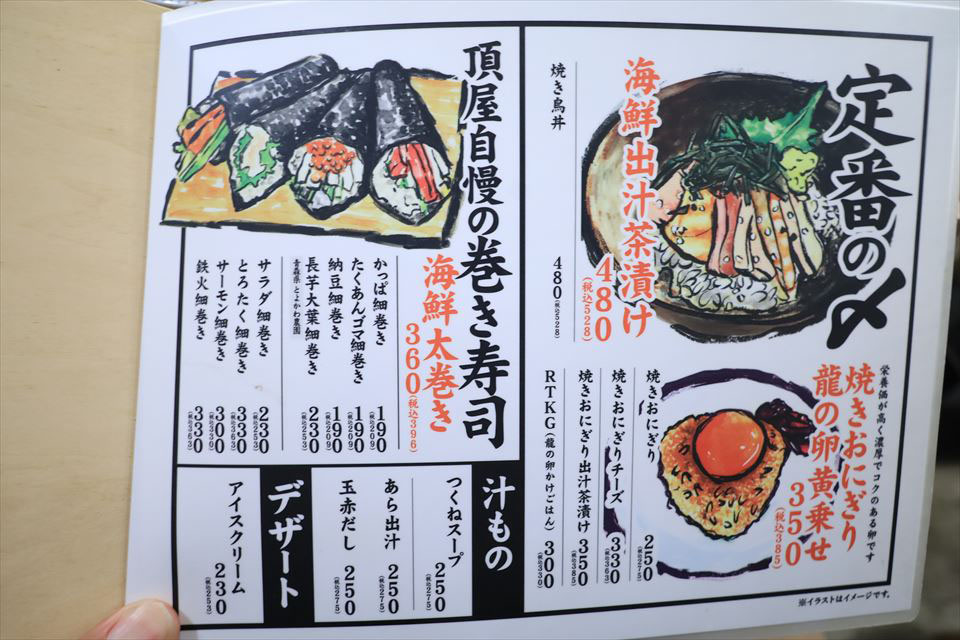 定番の〆
海鮮出汁茶漬け
480
(税込528)
焼き鳥丼
480(税込528)
栄養価が高く濃厚でコクのある卵です
焼きおにぎり
龍の卵黄乗せ
350
(税込385)
焼きおにぎり 250(税込275)
焼きおにぎりチーズ 330(税込363)
焼きおにぎり出汁茶漬け 350(税込385)
RTKG(龍の卵かけごはん) 300(税込330)
※イラストはイメージです。
頂屋自慢の巻き寿司
海鮮太巻き
360(税込396)
かっぱ細巻き 190(税込209)
たくあんゴマ細巻き 190(税込209)
納豆細巻き 190(税込209)
長芋大葉細巻き 230(税込253)
青森県 とよかわ農園
サラダ細巻き 230(税込253)
とろたく細巻き 330(税込363)
サーモン細巻き 330(税込330)
鉄火細巻き 330(税込363)
汁もの
つくねスープ 250(税込275)
あら出汁 250(税込275)
玉赤だし 250(税込275)
デザート
アイスクリーム 230(税込253)